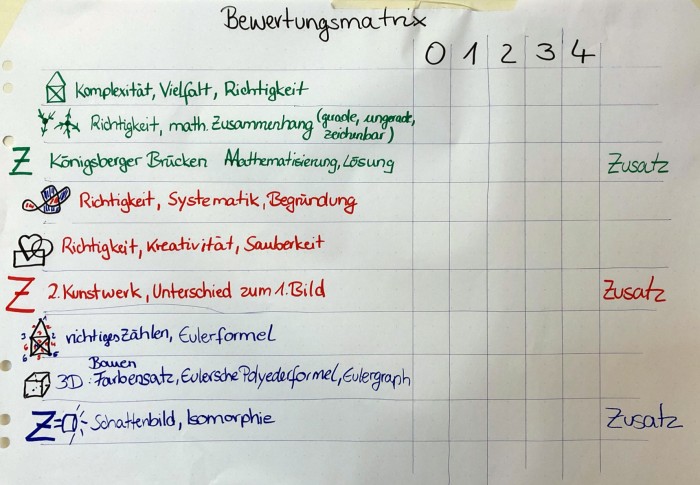 Bewertungsmatrix
0 1 2 3 4
Komplexität, Vielfalt, Richtigkeit
Richtigkeit, math. Zusammenhang (gerade, ungerade,
zeichenbar)
Z Königsberger Brücken Mathematisierung, Lösung Zusatz
Richtigkeit, Systematik, Begründung
Richtigkeit, Kreativität, Sauberkeit
Z 2. Kunstwerk, Unterschied zum 1. Bild Zusatz
richtiges Zählen, Eulerformel
Bauen
3D: Farbensatz, Eulersche Polyederformel, Eulergraph
Z= Schattenbild, Isomorphie Zusatz